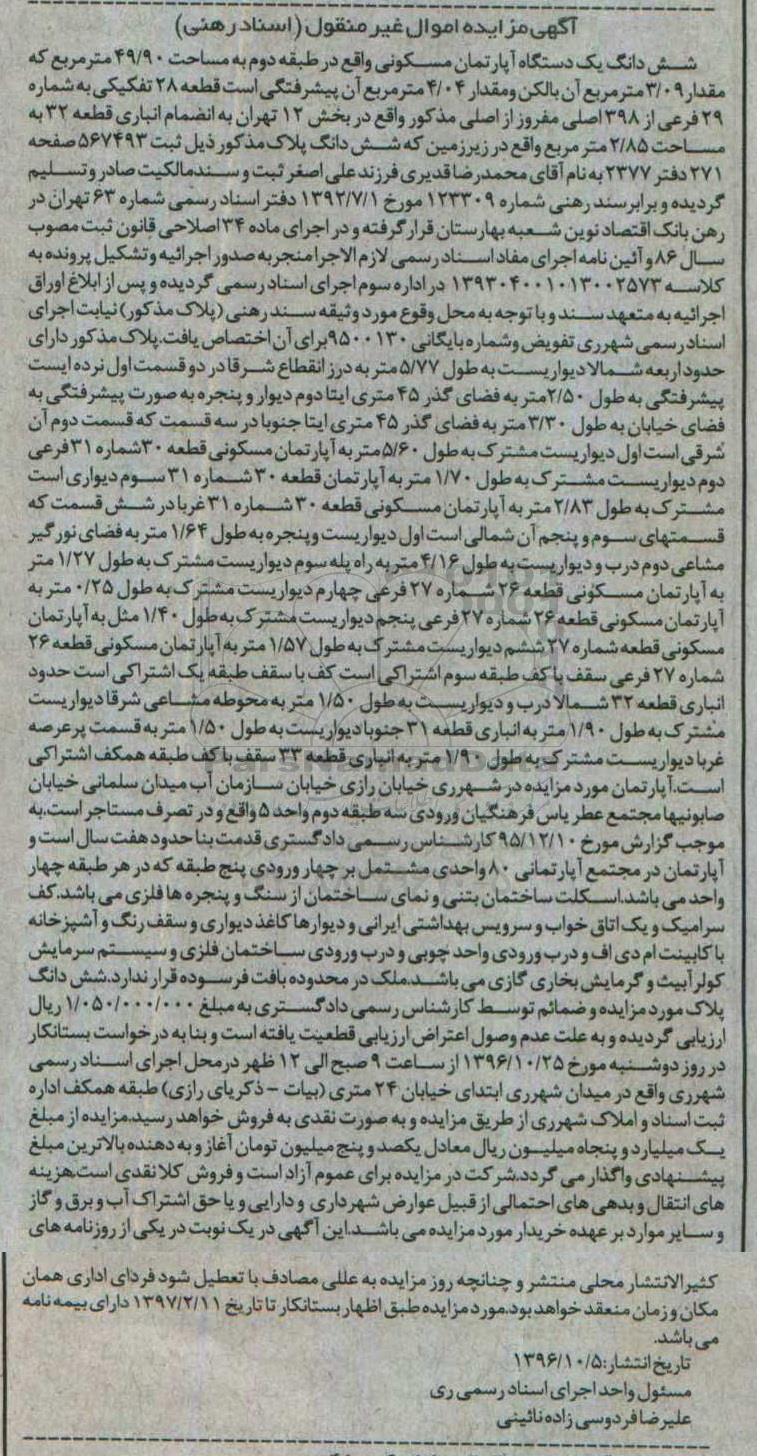 آگهی مزایده اموال غیر منقول (اسناد رهنی)
شش دانگ یک دستگاه آپارتمان مسکونی واقع در طبقه دوم به مساحت ۴۹/۹۰ مترمربع که
مقدار ۳/۰۹ مترمربع آن بالکن ومقدار ۴/۰۴ مترمربع آن پیشرفتگی است قطعه ۲۸ تفکیکی به شماره
۲۹ فرعی از ۳۹۸ اصلی مفروز از اصلی مذکور واقع در بخش ۱۲ تهران به انضمام انباری قطعه ۳۲ به
مساحت ۲/۸۵ متر مربع واقع در زیرزمین که شش دانگ پلاک مذکور ذیل ثبت ۵۶۷۴۹۳ صفحه
۲۷۱ دفتر ۲۳۷۷ به نام آقای محمدرضا قدیری فرزند علی اصغر ثبت و سند مالکیت صادر و تسلیم
گردیده و برابر سند رهنی شماره ۱۲۳۳۰۹ مورخ ۱۳۹۲/۷/۱ دفتر اسناد رسمی شماره ۶۳ تهران در
رهن بانک اقتصاد نوین شعبه بهارستان قرار گرفته و در اجرای ماده ۳۴ اصلاحی قانون ثبت مصوب
سال ۸۶ و آئین نامه اجرای مفاد اسناد رسمی لازم الاجرا منجر به صدور اجرائیه و تشکیل پرونده به
کلاسه ۱۳۹۳۰۴۰۰۱۰۱۳۰۰۲۵۷۳ در اداره سوم اجرای اسناد رسمی گردیده و پس از ابلاغ اوراق
اجرائیه به متعهد سند و با توجه به محل وقوع مورد وثیقه سند رهنی (پلاک مذکور) نیابت اجرای
اسناد رسمی شهرری تفویض وشماره بایگانی ۹۵۰۰۱۳۰ برای آن اختصاص یافت.پلاک مذکور دارای
حدود اربعه شمالا دیواریست به طول ۵/۷۷ متر به درز انقطاع شرقا در دو قسمت اول نرده ایست
پیشرفتگی به طول ۲/۵۰ متر به فضای گذر ۴۵ متری ایتا دوم دیوار و پنجره به صورت پیشرفتگی به
فضای خیابان به طول ۳/۳۰ متر به فضای گذر ۴۵ متری ایتا جنوبا در سه قسمت که قسمت دوم آن
شرقی است اول دیواریست مشترک به طول ۵/۶۰ متر به آپارتمان مسکونی قطعه ۳۰ شماره ۳۱ فرعی
دوم دیواریست مشترک به طول ۱/۷۰ متر به آپارتمان قطعه ۳۰ شماره ۳۱ سوم دیواری است
مشترک به طول ۲/۸۳ متر به آپارتمان مسکونی قطعه ۳۰ شماره ۳۱ غربا در شش قسمت که
قسمتهای سوم و پنجم آن شمالی است اول دیواریست وپنجره به طول ۱/۶۴ متر به فضای نورگیر
مشاعی دوم درب و دیواریست به طول ۴/۱۶ متر به راه پله سوم دیواریست مشترک به طول ۱/۲۷ متر
به آپارتمان مسکونی قطعه ۲۶ شماره ۲۷ فرعی چهارم دیواریست مشترک به طول ۰/۲۵ متر به
آپارتمان مسکونی قطعه ۲۶ شماره ۲۷ فرعی پنجم دیواریست مشترک به طول ۱/۴۰ مثل به آپارتمان
مسکونی قطعه شماره ۲۷ ششم دیواریست مشترک به طول ۱/۵۷ متر به آپارتمان مسکونی قطعه ۲۶
شماره ۲۷ فرعی سقف با کف طبقه سوم اشتراکی است کف با سقف طبقه یک اشتراکی است حدود
انباری قطعه ۳۲ شمالا درب و دیواریست به طول ۱/۵۰ متر به محوطه مشاعی شرقا دیواریست
مشترک به طول ۱/۹۰ متر به انباری قطعه ۳۱ جنوبا دیواریست به طول ۱/۵۰ متر به قسمت پر عرصه
غربا دیواریست مشترک به طول ۱/۹۰ متر به انباری قطعه ۳۳ سقف با کف طبقه همکف اشتراکی
است.آپارتمان مورد مزایده در شهرری خیابان رازی خیابان سازمان آب میدان سلمانی خیابان
صابونیها مجتمع عطر یاس فرهنگیان ورودی سه طبقه دوم واحد ۵ واقع و در تصرف مستاجر است.به
موجب گزارش مورخ ۹۵/۱۲/۱۰ کارشناس رسمی دادگستری قدمت بنا حدود هفت سال است و
آپارتمان در مجتمع آپارتمانی ۸۰ واحدی مشتمل بر چهار ورودی پنج طبقه که در هر طبقه چهار
واحد می باشد.اسکلت ساختمان بتنی و نمای ساختمان از سنگ و پنجره ها فلزی می باشد.کف
سرامیک و یک اتاق خواب و سرویس بهداشتی ایرانی و دیوارها کاغذ دیواری و سقف رنگ و آشپزخانه
با کابینت ام دی اف و درب ورودی واحد چوبی و درب ورودی ساختمان فلزی و سیستم سرمایش
کولر آبیث و گرمایش بخاری گازی می باشد.ملک در محدوده بافت فرسوده قرار ندارد.شش دانگ
پلاک مورد مزایده و ضمائم توسط کارشناس رسمی دادگستری به مبلغ ۱/۰۵۰/۰۰۰/۰۰۰ ریال
ارزیابی گردیده و به علت عدم وصول اعتراض ارزیابی قطعیت یافته است و بنا به درخواست بستانکار
در روز دوشنبه مورخ ۱۳۹۶/۱۰/۲۵ از ساعت ۹ صبح الی ۱۲ ظهر درمحل اجرای اسناد رسمی
شهرری واقع در میدان شهرری ابتدای خیابان ۲۴ متری (بیات - ذکریای رازی) طبقه همکف اداره
ثبت اسناد و املاک شهرری از طریق مزایده و به صورت نقدی به فروش خواهد رسید.مزایده از مبلغ
یک میلیارد و پنجاه میلیون ریال معادل یکصد و پنج میلیون تومان آغاز و به دهنده بالاترین مبلغ
پیشنهادی واگذار می گردد.شرکت در مزایده برای عموم آزاد است و فروش کلا نقدی است.هزینه
های انتقال و بدهی های احتمالی از قبیل عوارض شهرداری و دارایی و یا حق اشتراک آب و برق و گاز
و سایر موارد بر عهده خریدار مورد مزایده می باشد.این آگهی در یک نوبت در یکی از روزنامه های
کثیرالانتشار محلی منتشر و چنانچه روز مزایده به عللی مصادف با تعطیل شود فردای اداری همان
مکان و زمان منعقد خواهد بود.مورد مزایده طبق اظهار بستانکار تا تاریخ ۱۳۹۷/۲/۱۱ دارای بیمه نامه
می باشد.
تاریخ انتشار:۱۳۹۶/۱۰/۵
مسئول واحد اجرای اسناد رسمی ری
علیرضا فردوسی زاده نائینی